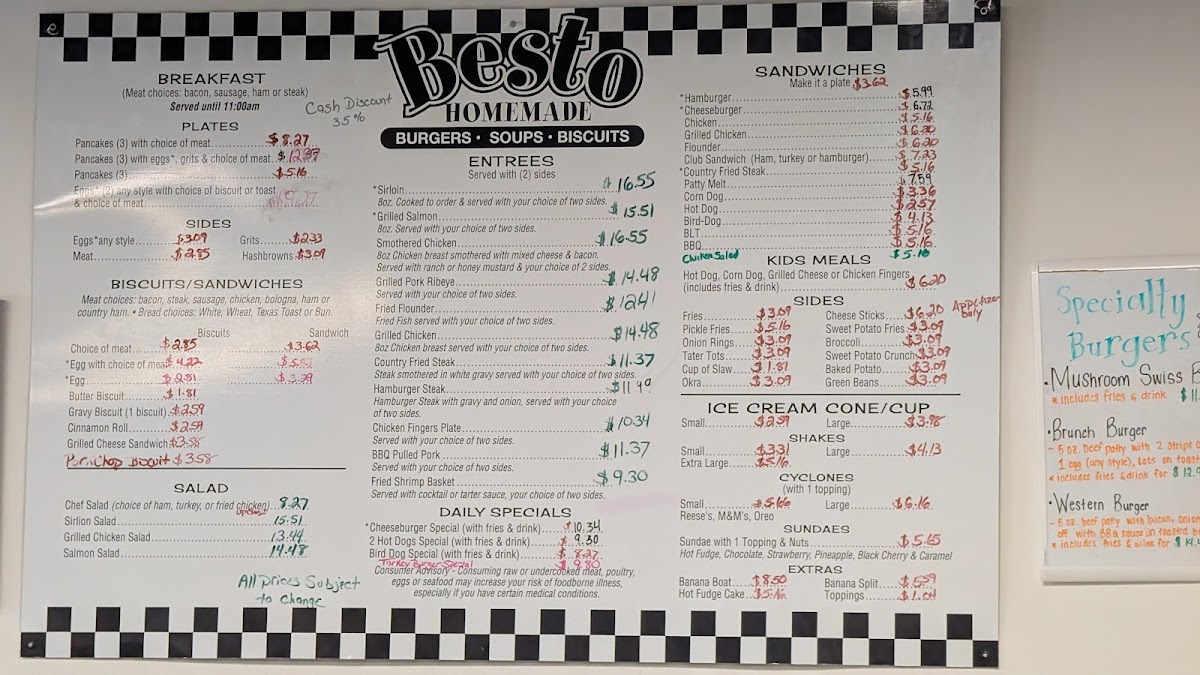 Besto
HOMEMADE
BURGERS • SOUPS • BISCUITS
Cash Discount
35%
BREAKFAST
(Meat choices: bacon, sausage, ham or steak)
Served until 11:00am
PLATES
Pancakes (3) with choice of meat $8.27
Pancakes (3) with eggs*, grits & choice of meat
Pancakes (3) $5.16
Eggs* (2) any style with choice of biscuit or toast
& choice of meat
SIDES
Eggs*any style $3.09 Grits $2.33
Meat $2.85 Hashbrowns $3.09
BISCUITS/SANDWICHES
Meat choices: bacon, steak, sausage, chicken, bologna, ham or
country ham. • Bread choices: White, Wheat, Texas Toast or Bun.
Biscuits Sandwich
Choice of meat $2.85 $3.62
*Egg with choice of meat $4.22
*Egg $2.81
Butter Biscuit $1.81
Gravy Biscuit (1 biscuit) $2.59
Cinnamon Roll $2.59
Grilled Cheese Sandwich $3.58
Porkchop Biscuit $3.58
SALAD
Chef Salad (choice of ham, turkey, or fried chicken) 8.27
Sirlion Salad 15.51
Grilled Chicken Salad 13.44
Salmon Salad 14.48
All Prices Subject
to change
ENTREES
Served with (2) sides
*Sirloin $16.55
8oz. Cooked to order & served with your choice of two sides.
*Grilled Salmon $15.51
8oz. Served with your choice of two sides.
Smothered Chicken $16.55
8oz Chicken breast smothered with mixed cheese & bacon.
Served with ranch or honey mustard & your choice of 2 sides.
Grilled Pork Ribeye $14.48
Served with your choice of two sides.
Fried Flounder $12.41
Fried Fish served with your choice of two sides.
Grilled Chicken $14.48
8oz Chicken breast served with your choice of two sides.
Country Fried Steak $11.37
Steak smothered in white gravy served with your choice of two sides.
Hamburger Steak
Hamburger Steak with gravy and onion, served with your choice
of two sides.
Chicken Fingers Plate $10.34
Served with your choice of two sides.
BBQ Pulled Pork $11.37
Served with your choice of two sides.
Fried Shrimp Basket $9.30
Served with cocktail or tarter sauce, your choice of two sides.
DAILY SPECIALS
*Cheeseburger Special (with fries & drink) $10.34
2 Hot Dogs Special (with fries & drink) $9.30
Bird Dog Special (with fries & drink) $8.27
Turkey Burger Special $9.80
Consumer Advisory - Consuming raw or undercooked meat, poultry,
eggs or seafood may increase your risk of foodborne illness,
especially if you have certain medical conditions.
SANDWICHES
Make it a plate $3.62
*Hamburger $5.99
*Cheeseburger $6.72
Chicken $5.16
Grilled Chicken $6.20
Flounder $6.20
Club Sandwich (Ham, turkey or hamburger) $7.23
*Country Fried Steak $5.16
Patty Melt 7.59
Corn Dog $3.36
Hot Dog $2.57
Bird-Dog $4.13
BLT $5.16
BBQ $5.16
Chicken Salad $5.16
KIDS MEALS
Hot Dog, Corn Dog, Grilled Cheese or Chicken Fingers
(includes fries & drink) $6.20
SIDES
Fries $3.09 Cheese Sticks $6.20 Appetizer
Only
Pickle Fries $5.16 Sweet Potato Fries $3.09
Onion Rings $3.09 Broccoli $3.09
Tater Tots $3.09 Sweet Potato Crunch $3.09
Cup of Slaw $1.81 Baked Potato $3.09
Okra $3.09 Green Beans $3.09
ICE CREAM CONE/CUP
Small $2.59 Large $3.98
SHAKES
Small $3.31 Large $4.13
Extra Large $5.16
CYCLONES
(with 1 topping)
Small $5.66 Large $6.16
Reese's, M&M's, Oreo
SUNDAES
Sundae with 1 Topping & Nuts
Hot Fudge, Chocolate, Strawberry, Pineapple, Black Cherry & Caramel
EXTRAS
Banana Boat $8.50 Banana Split $5.59
Hot Fudge Cake $5.16 Toppings $1.04
Specialty
Burgers
• Mushroom Swiss B
* includes fries & drink $11
• Brunch Burger
- 5 oz. beef patty with 2 strips
1 egg (any style), Lots on toast
* includes fries & drink for
• Western Burger
- 5 oz. beef patty with bacon, onion
off with BBQ sauce on toasted
* includes fries & drink for $14